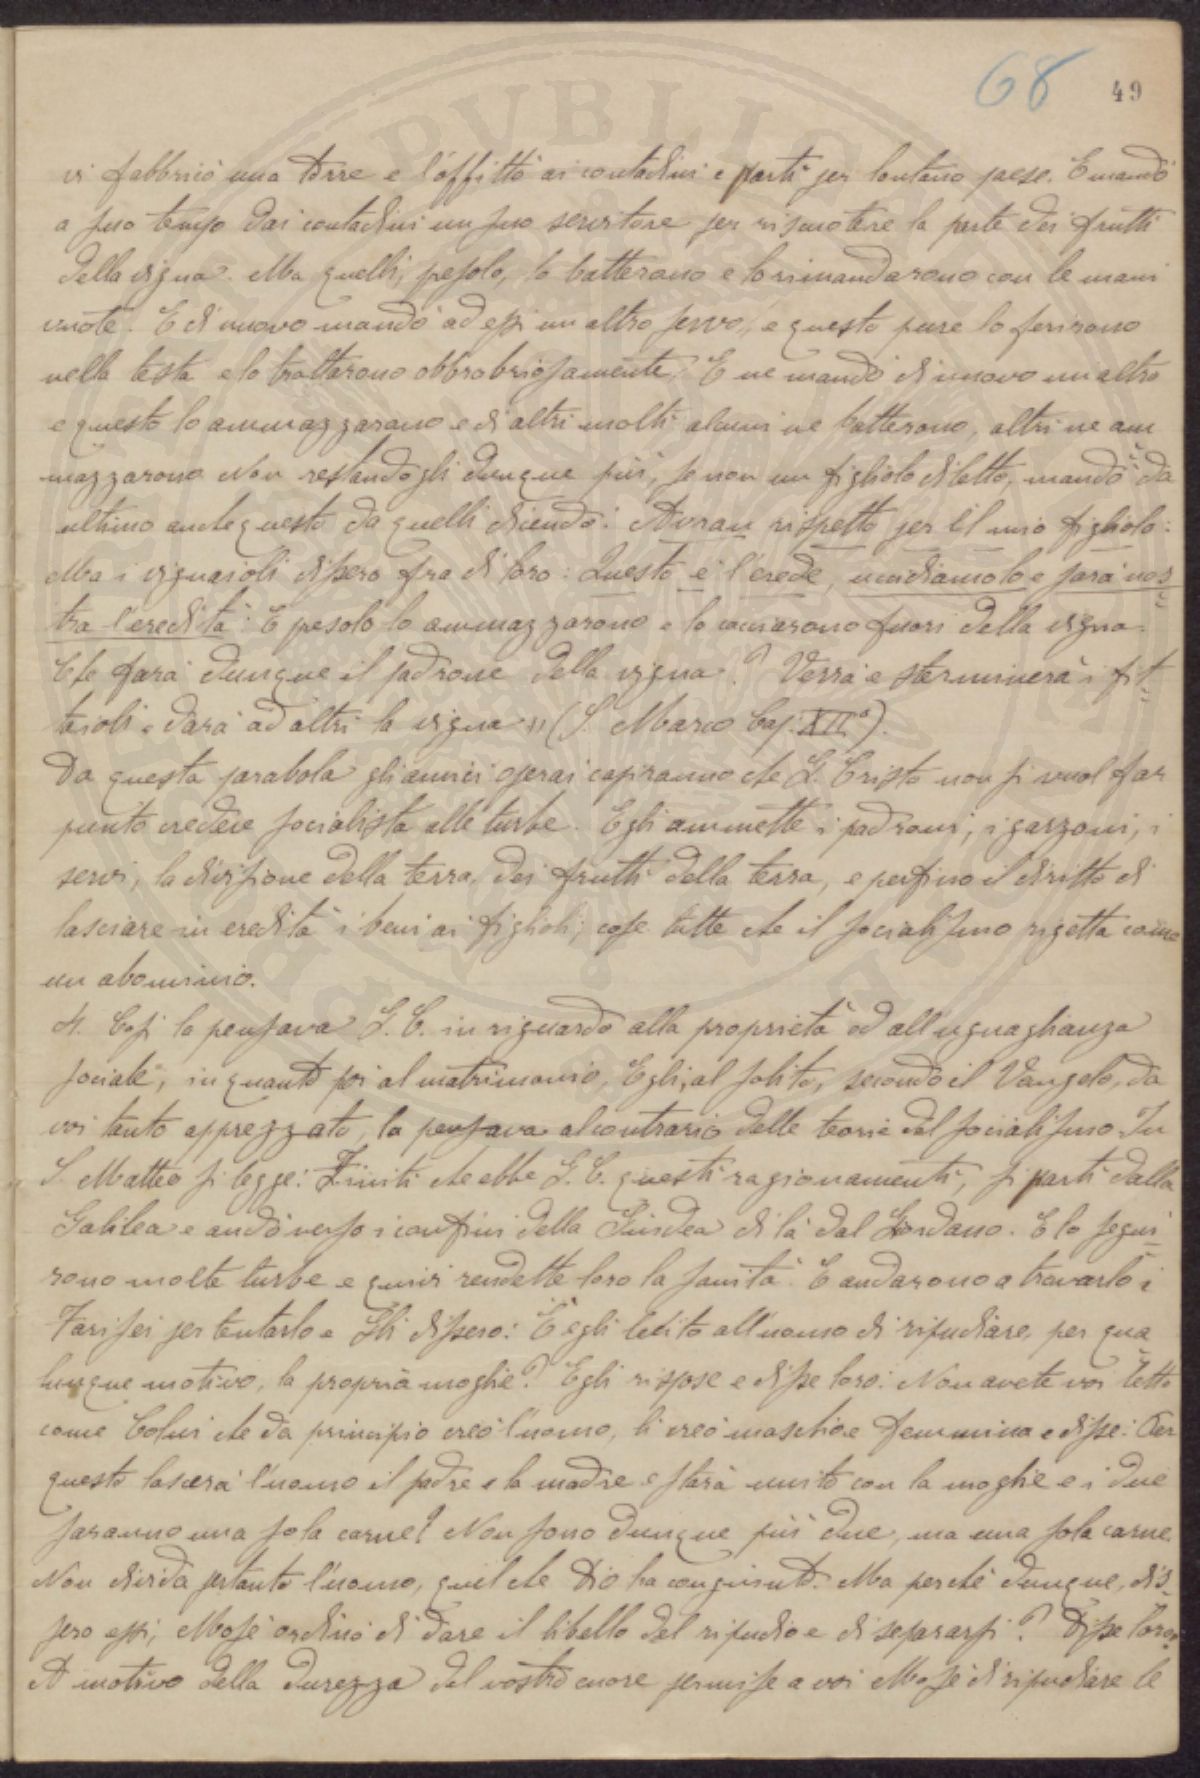 68 49
vi fabbricò una torre e l'affittò ai contadini e partì per lontano paese. E mandò
a suo tempo dai contadini un suo servitore per riscuotere la parte dei frutti
della vigna. Ma quelli, presolo, lo batterono e lo rimandarono con le mani
vuote. E di nuovo mandò ad essi un altro servo, e questo pure lo ferirono
nella testa e lo trattarono obbrobriosamente. E ne mandò di nuovo un altro
e questo lo ammazzarono e di altri molti alcuni ne batterono, altri ne am
mazzarono. Non restandogli dunque più, se non un figliolo diletto, mandò da
ultimo anche questo da quelli dicendo: Avran rispetto per il mio figliolo:
Ma i vignaioli dissero fra di loro: Questo è l'erede, uccidiamolo e sarà nos
tra l'eredità: E presolo lo ammazzarono e lo cacciarono fuori della vigna.
Che farà dunque il padrone della vigna? Verrà e sterminerà i fit
taioli e darà ad altri la vigna" (S. Marco Cap. XII°).
Da questa parabola gli amici operai capiranno che G. Cristo non si vuol far
punto credere socialista alle turbe. Egli ammette i padroni, i garzoni, i
servi, la divisione della terra, dei frutti della terra, e perfino il diritto di
lasciare in eredità i beni ai figlioli; cose tutte che il socialismo rigetta come
un abominio.
4. Così la pensava G. C. in riguardo alla proprietà ed all'uguaglianza
sociale; in quanto poi al matrimonio, Egli, al solito, secondo il Vangelo, da
voi tanto apprezzato, la pensava al contrario delle teorie del socialismo. In
S. Matteo si legge: Finiti che ebbe G. C. questi ragionamenti, si partì dalla
Galilea e andò verso i confini della Giudea di là dal Giordano. E lo segui
rono molte turbe e quivi rendette loro la sanità. E andarono a trovarlo i
Farisei per tentarlo e Gli dissero: È egli lecito all'uomo di ripudiare, per qua
lunque motivo, la propria moglie? Egli rispose e disse loro: Non avete voi letto
come Colui che da principio creò l'uomo, li creò maschio e femmina e disse: Per
questo lascerà l'uomo il padre e la madre e starà unito con la moglie e i due
saranno una sola carne? Non sono dunque più due, ma una sola carne.
Non divida pertanto l'uomo, quel che Dio ha congiunto. Ma perché dunque, dis
sero essi, Mosè ordinò di dare il libello del ripudio e di separarsi? Disse loro:
A motivo della durezza del vostro cuore permise a voi Mosè di ripudiare le